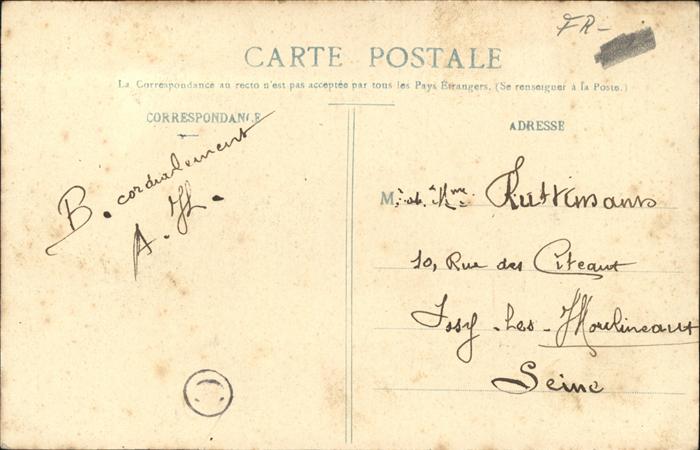 FR-
CARTE POSTALE
La Correspondance au recto n'est pas acceptée par tous les Pays Étrangers. (Se renseigner à la Poste.)
CORRESPONDANCE
ADRESSE
B. cordialement
A. H.
M. et Mme Ruttimann
10, Rue des Citeaux
Issy-les-Moulineaux
Seine